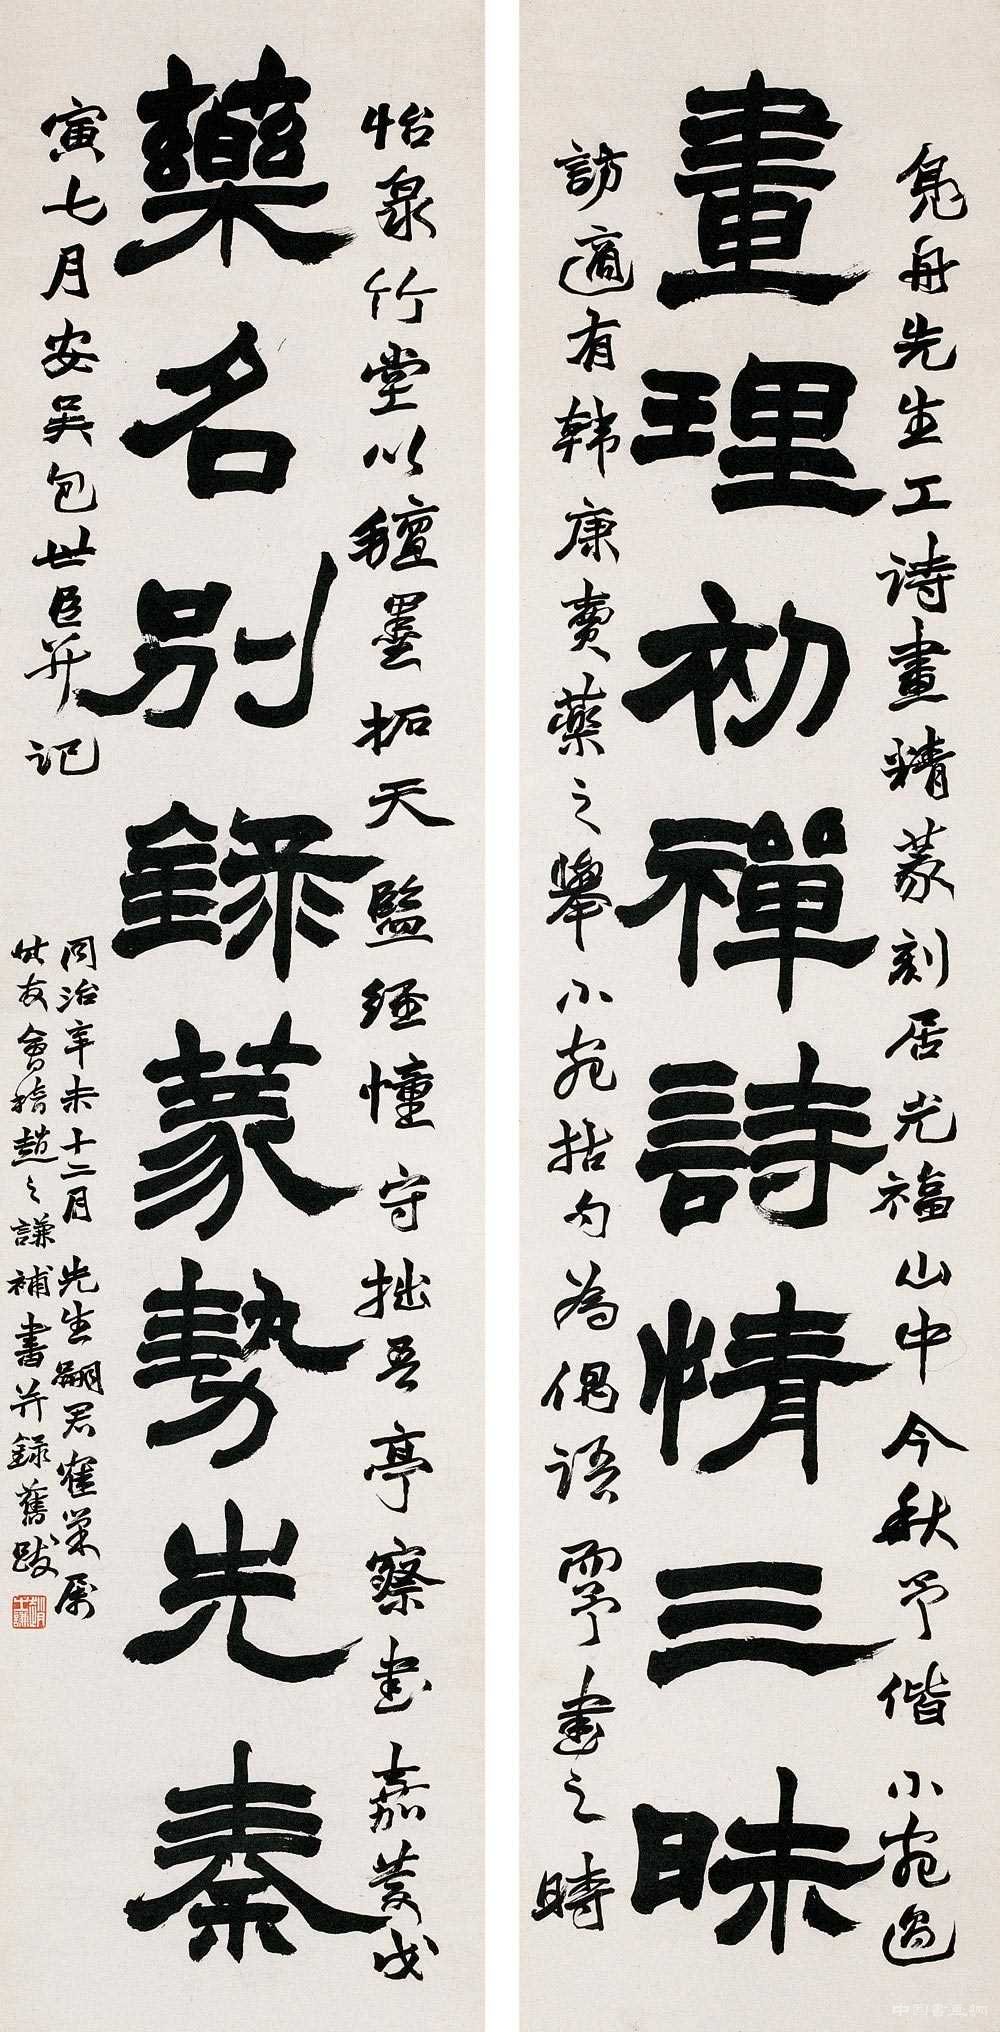 鳧舟先生工詩畫精篆刻居光福山中今秋予偕小宛過
畫理初禪詩情三昧
訪適有韓康賣藥之舉小宛括句為偶語而予書之時
怡泉竹堂以氊墨拓天監經幢守拙吾亭察書嘉慶戊
藥名別錄篆勢先秦
寅七月安吳包世臣并記
同治辛未十二月 先生嗣君寉巢屬
友會稽趙之謙補書并錄舊跋